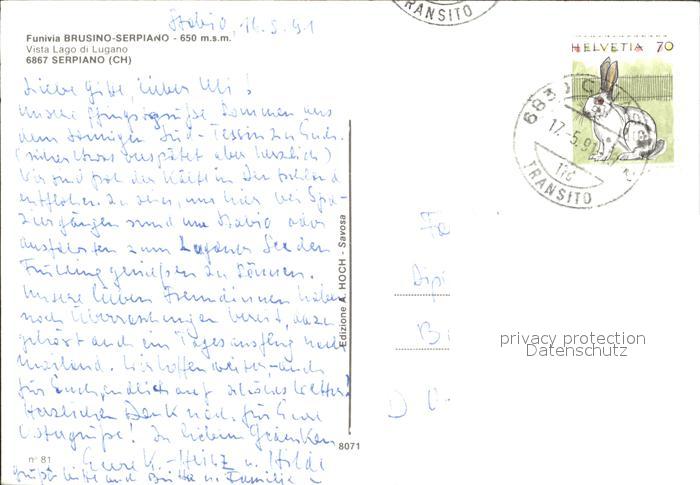 Stabio, 16.5.91
Funivia BRUSINO-SERPIANO - 650 m.s.m.
Vista Lago di Lugano
6867 SERPIANO (CH)
Liebe Gitte, lieber Uli!
Unsere Pfingstgrüße kommen aus
dem sonnigen Süd-Tessin zu Euch.
(sicher etwas verspätet aber herzlich)
Wir sind froh der Kälte in Deutschland
entflohen zu sein, uns hier bei Spa-
ziergängen rund um Stabio oder
ausfahrten zum Luganer See den
Frühling genießen zu können.
Unsere lieben Freundinnen haben
noch Überraschungen bereit, dazu
gehört auch ein Tagesausflug nach
Mailand. Wir hoffen weiter auch
für Euch, endlich auf schönes Wetter!
Herzlichen Dank noch für Eure
Ostergrüße! In lieben Gedanken
Eure K.-Heinz u. Hilde
grüßt bitte auch Britta u. Familie
nº 81
8071
Edizione A. HOCH - Savosa
TRANSITO
HELVETIA 70
17.-5.91
TRANSITO
Fa
Dipl
B
D
privacy protection
Datenschutz